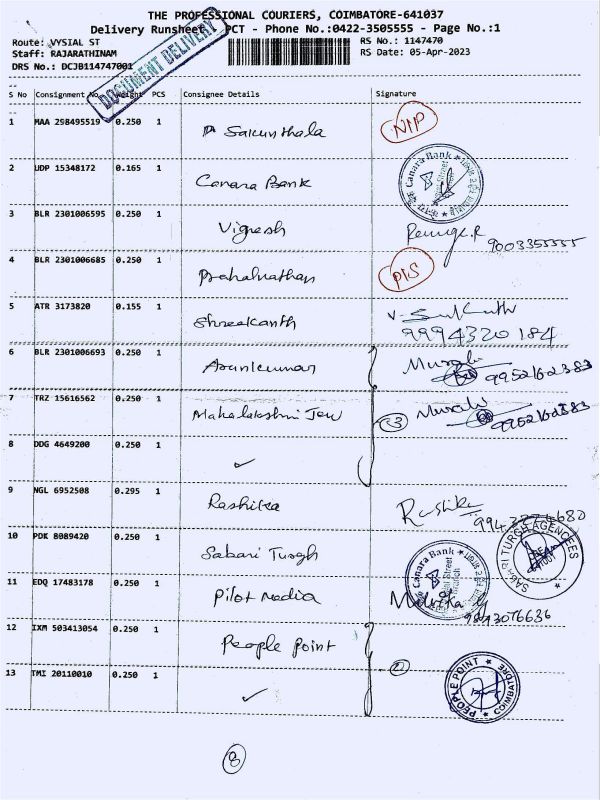 THE PROFESSIONAL COURIERS, COIMBATORE-641037
Delivery Runsheet PCT - Phone No.:0422-3505555 - Page No.:1
Route: VYSIAL ST
RS No.: 1147470
Staff: RAJARATHINAM
RS Date: 05-Apr-2023
DRS No.: DCJB114747001
DOCUMENT DELIVERY
S No Consignment No Weight PCS Consignee Details Signature
1 MAA 298495519 0.250 1 P Sakunthala NIP
2 UDP 15348172 0.165 1 Canara Bank Canara Bank
3 BLR 2301006595 0.250 1 Vignesh Renuga.R 9003355555
4 BLR 2301006685 0.250 1 PIS
5 ATR 3173820 0.155 1 Shreekanth 9994320184
6 BLR 2301006693 0.250 1 Arunkumar Murali 9952162383
7 TRZ 15616562 0.250 1 Mahalakshmi Jew 3 Murali 9952162383
8 DDG 4649200 0.250 1 ✓
9 NGL 6952508 0.295 1 Rashika Rashika
10 PDK 8089420 0.250 1 Sabari Turgh SABHRI TURGH AGENCEES
11 EDQ 17483178 0.250 1 Pilot Media Canara Bank
12 IXM 503413054 0.250 1 People Point
13 TMI 20110010 0.250 1 ✓ 2 PEOPLE POINT COIMBATORE
8